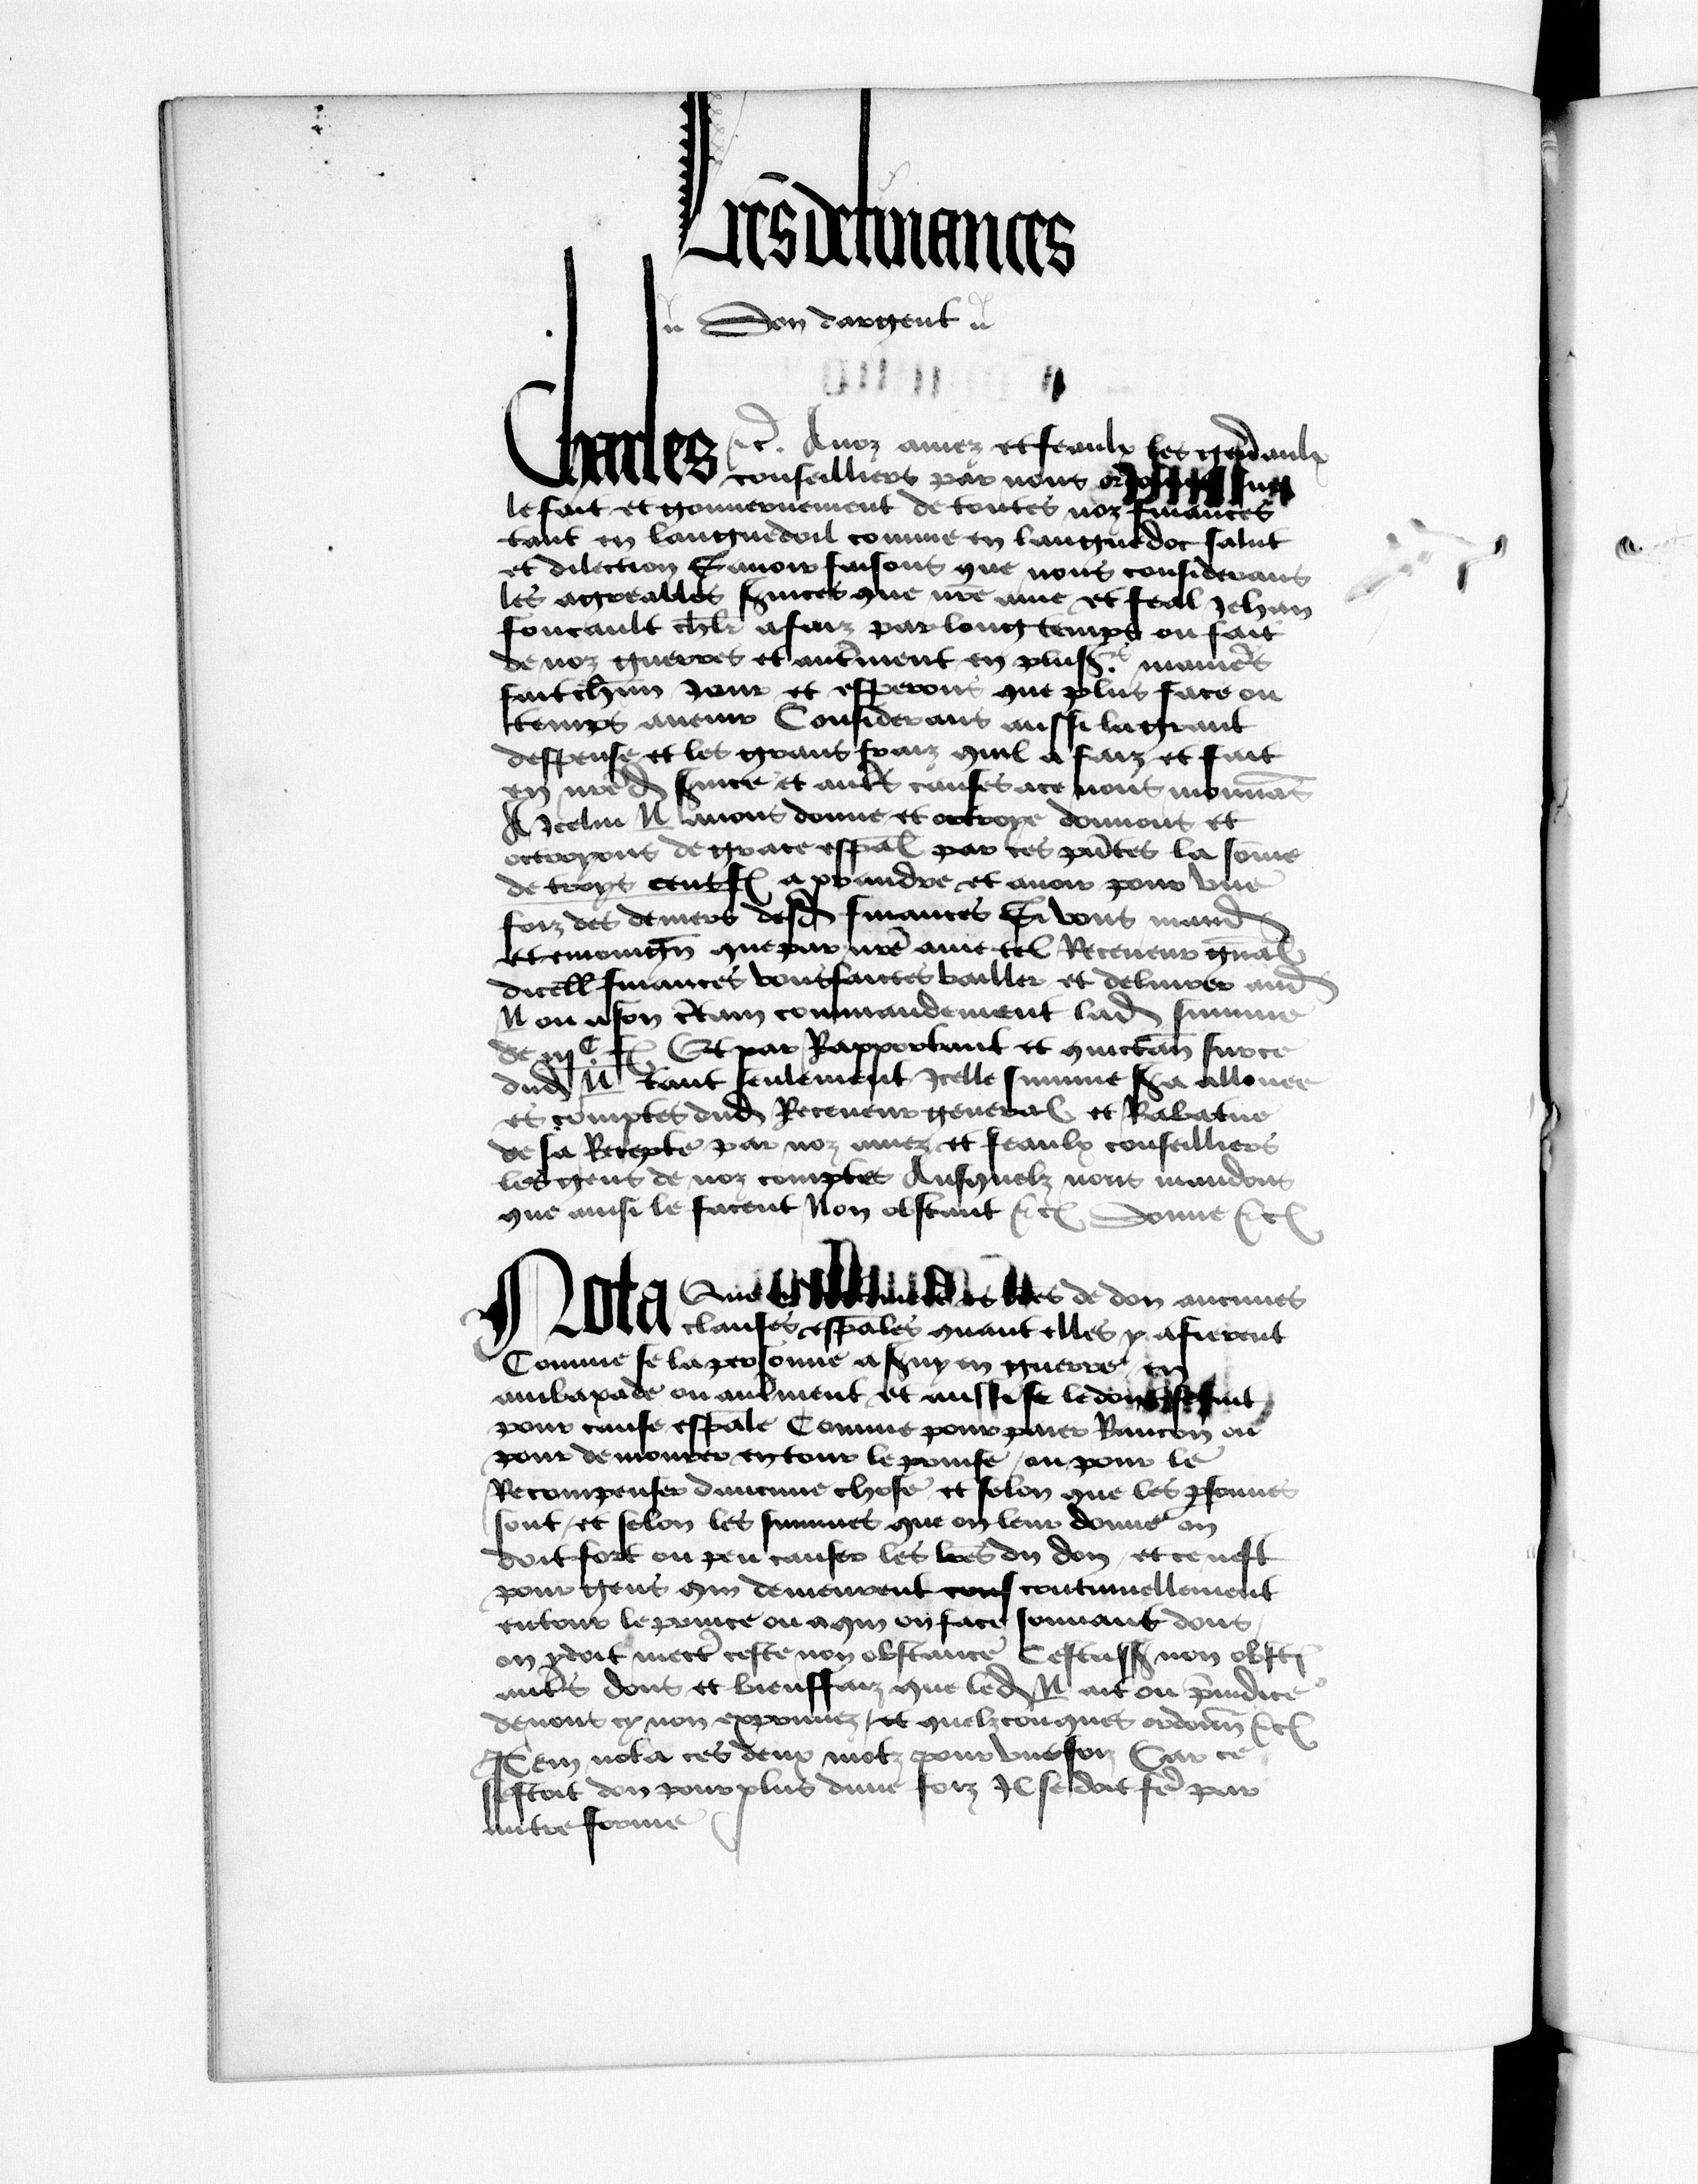 Lres de finances
Don dargent
Charles &c. A noz amez et feaulx les gnaulx
conseilliers par nous sur
le fait et gouvernement de toutes noz finances
tant en languedoil comme en languedoc salut
et dilection Savoir faisons que nous considerans
les agreables svices que nre ame et feal Jehan
foucault chlr a faiz par long temps ou fait
de noz guerres et autrement en pluss manieres
fait chun jour et esperons que plus face ou
temps avenir Considerans aussi la grant
despense et les grans fraiz quil a faiz et fait
en nred svice et autres causes a ce nous mouvans
A Icelui N avons donne et octroye donnons et
octroyons de grace espal par ces pntes la some
de troys cens fl a prandre et avoir pour une
foiz des deniers desd finances Si vous mand
et enioign que par nre ame tel Receveur gnal
dicell finances vous faictes bailler et delivrer aud
N ou a son ctain commandement lad summe
de iijC fl Et par Rapportant et quictan sur ce
dud N tant seulement Icelle summe sa allouee
es comptes dud Receveur general et Rabatue
de sa Recepte par noz amez et feaulx conseilliers
les gens de noz comptes Ausquelz nous mandons
que ainsi le facent Non obstant &c Donne &c
Nota Que lres de don aucunes
clauses espales quant elles y afierent
Comme se la personne a svy en guerre en
ambaxade ou autment et aussi se le don se fait
pour cause espale Comme pour paier Rancon ou
pour demourer entour le prince ou pour le
Recompenser daucune chose et selon que les psonnes
sont et selon les summes que on leur donne on
doit fort ou peu causer les lres du don et ce nest
pour gens qui demeurent cons continuellement
entour le prince ou a qui on face souvant dons
on y doit mectre ceste non obstance Cestass non obst
autres dons et bienffaiz que led N ait ou preiudice
de nous cy non exprimez et quelzconques ordonn &c
Item nota ces deux motz pour une foiz Car ce
sestoit don pour plus dune foiz Il se doit fe par
autre forme